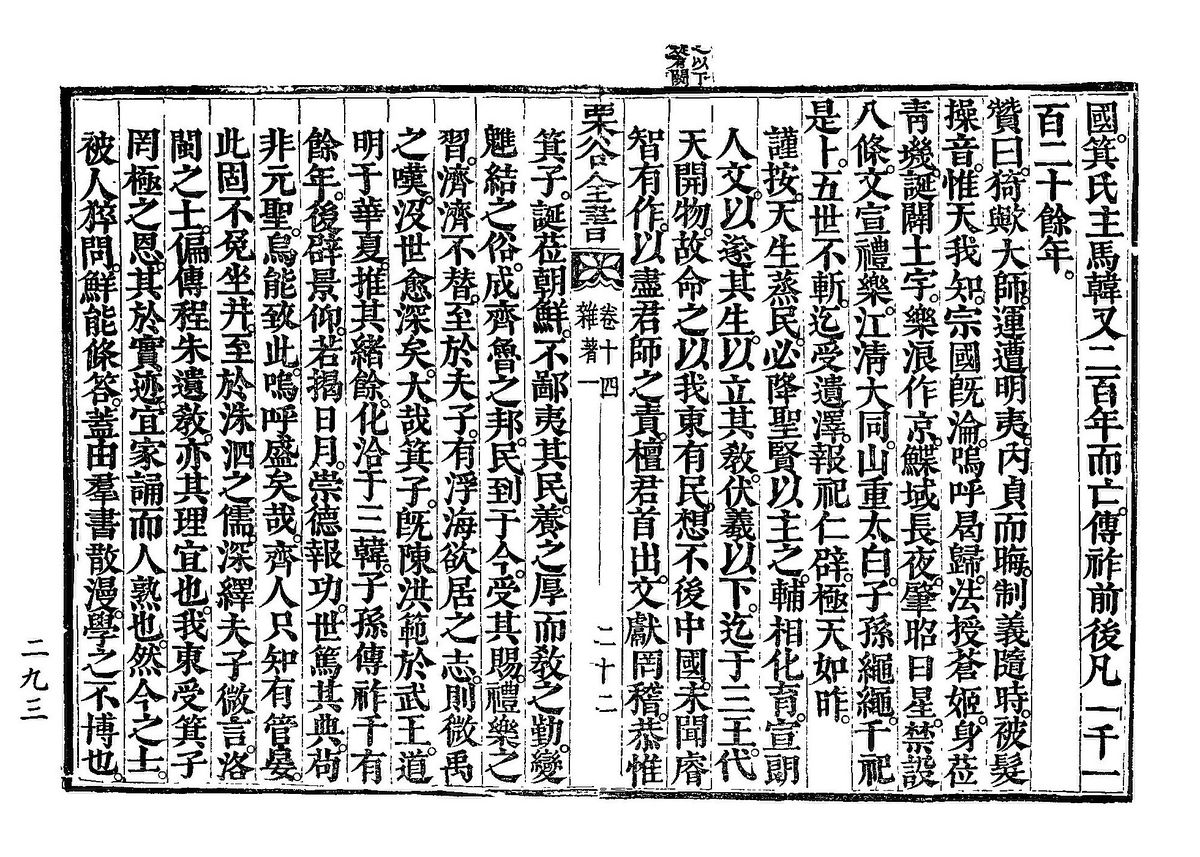 國。箕氏主馬韓又二百年而亡。傳祚前後凡一千一
百二十餘年。
贊曰。猗歟大師。運遭明夷。內貞而晦。制義隨時。被髮
操音。惟天我知。宗國旣淪。嗚呼曷歸。法授蒼姬。身莅
靑墟。誕闢土宇。樂浪作京。鰈域長夜。肇昭日星。禁設
八條。文宣禮樂。江淸大同。山重太白。子孫繩繩。千祀
是卜。五世不斬。迄受遺澤。報祀仁辟。極天如昨。
謹按。天生蒸民。必降聖賢以主之。輔相化育。宣朗
人文。以遂其生。以立其敎。伏羲以下。迄于三王。代
天開物。故命之以我東有民。想不後中國。未聞睿
智有作。以盡君師之責。檀君首出。文獻罔稽。恭惟
之以下
疑有闕
栗谷全書
卷十四
雜著一
二十二
箕子。誕莅朝鮮。不鄙夷其民。養之厚而敎之勤。變
魋結之俗。成齊魯之邦。民到于今。受其賜。禮樂之
習。濟濟不替。至於夫子。有浮海欲居之志。則微禹
之嘆。沒世愈深矣。大哉箕子。旣陳洪範於武王。道
明于華夏。推其緖餘。化洽于三韓。子孫傳祚千有
餘年。後辟景仰。若揭日月。崇德報功。世篤其典。苟
非元聖。烏能致此。嗚呼盛矣哉。齊人只知有管晏。
此固不免坐井。至於洙泗之儒。深繹夫子微言。洛
閩之士。偏傳程朱遺敎。亦其理宜也。我東受箕子
罔極之恩。其於實迹。宜家誦而人熟也。然今之士。
被人猝問。鮮能條答。蓋由羣書散漫。學之不博也。
二九三